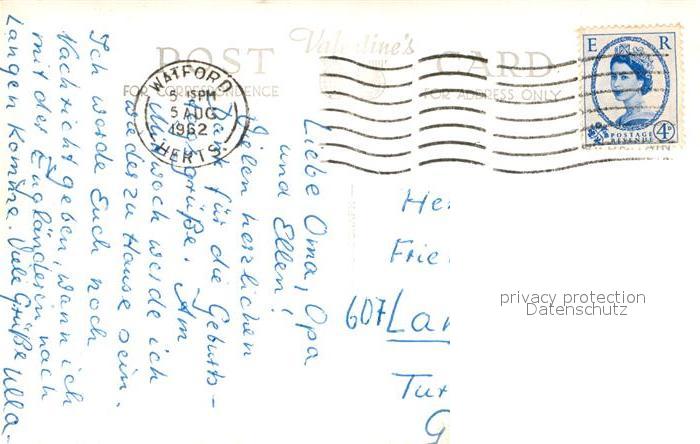 POST Valentine's CARD
FOR CORRESPONDENCE
FOR ADDRESS ONLY
WATFORD
5 15 PM
5 AUG
1962
HERTS.
E R
POSTAGE
REVENUE
4D
Liebe Oma, Opa
und Ellen!
Vielen herzlichen
Dank für die Geburts-
tagsgrüße. Am
Mittwoch werde ich
wieder zu Hause sein.
Ich werde Euch noch
Nachricht geben, wann ich
mit der Engländerin nach
Langen komme. Viele Grüße Ulla.
He
Frie
607 Lan
Tur
G
privacy protection
Datenschutz